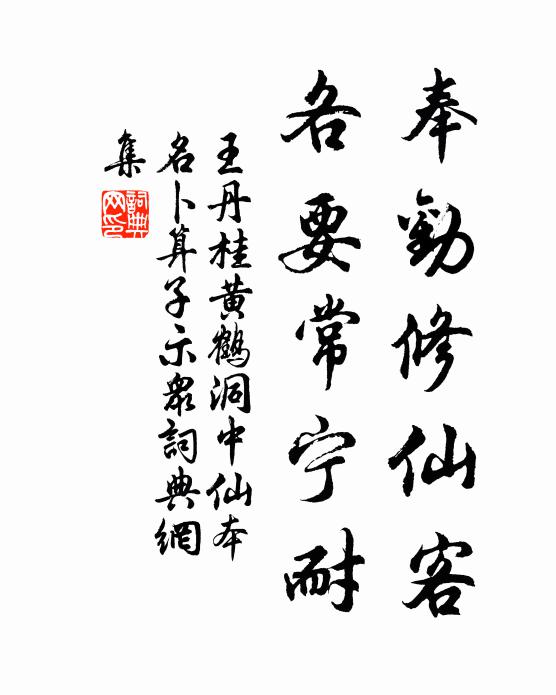 奉勸修仙客
各要常宁耐
王丹桂黄鶴洞中仙本
名卜算子示衆詞典網
集
詞典網印